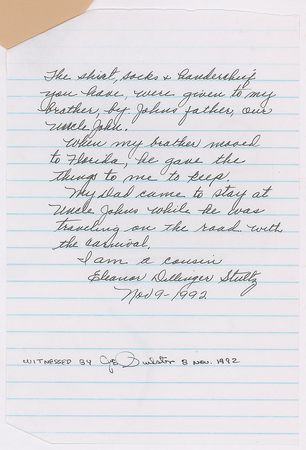 The shirt, socks & handershif
you have, were given to my
brother, by Johns father, our
Uncle John.
When my brother moved
to Florida, he gave the
things to me to keep.
My Dad came to stay at
Uncle Johns while he was
traveling on the road with
the carnival.
I am a cousin
Eleanor Dillinger Stultz
Nov 9-1992
WITNESSED BY 8 NOV. 1992